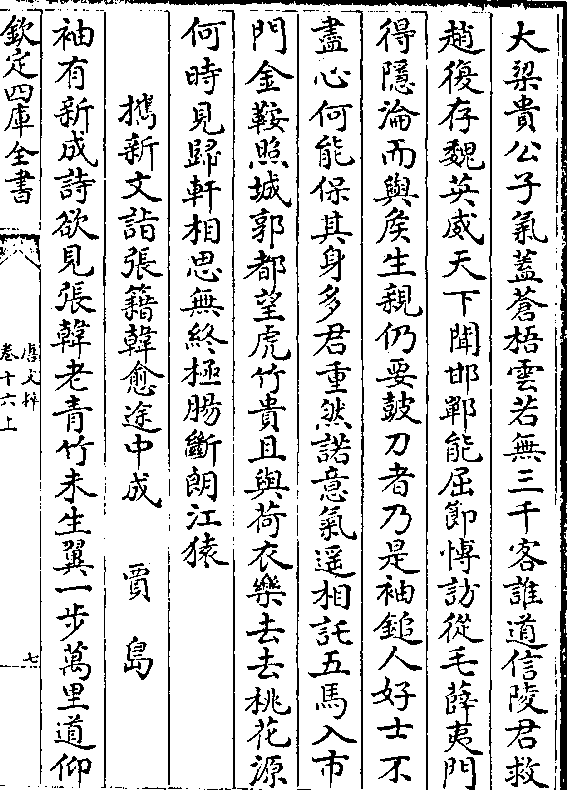 大梁貴公子氣蓋蒼梧雲若無三千客誰道信陵君救
趙復存魏英威天下聞邯鄲能屈節愽訪從毛薛夷門
得隱淪而與矦生親仍要皷刀者乃是袖鎚人好士不
盡心何能保其身多君重然諾意氣遥相託五馬入市
門金鞍照城郭都望虎竹貴且與荷衣樂去去桃花源
何時見歸軒相思無終極腸斷朗江猿
攜新文詣張籍韓愈途中成　賈島
袖有新成詩欲見張韓老青竹未生翼一步萬里道仰
欽定四庫全書
唐文粹
卷十六上
七